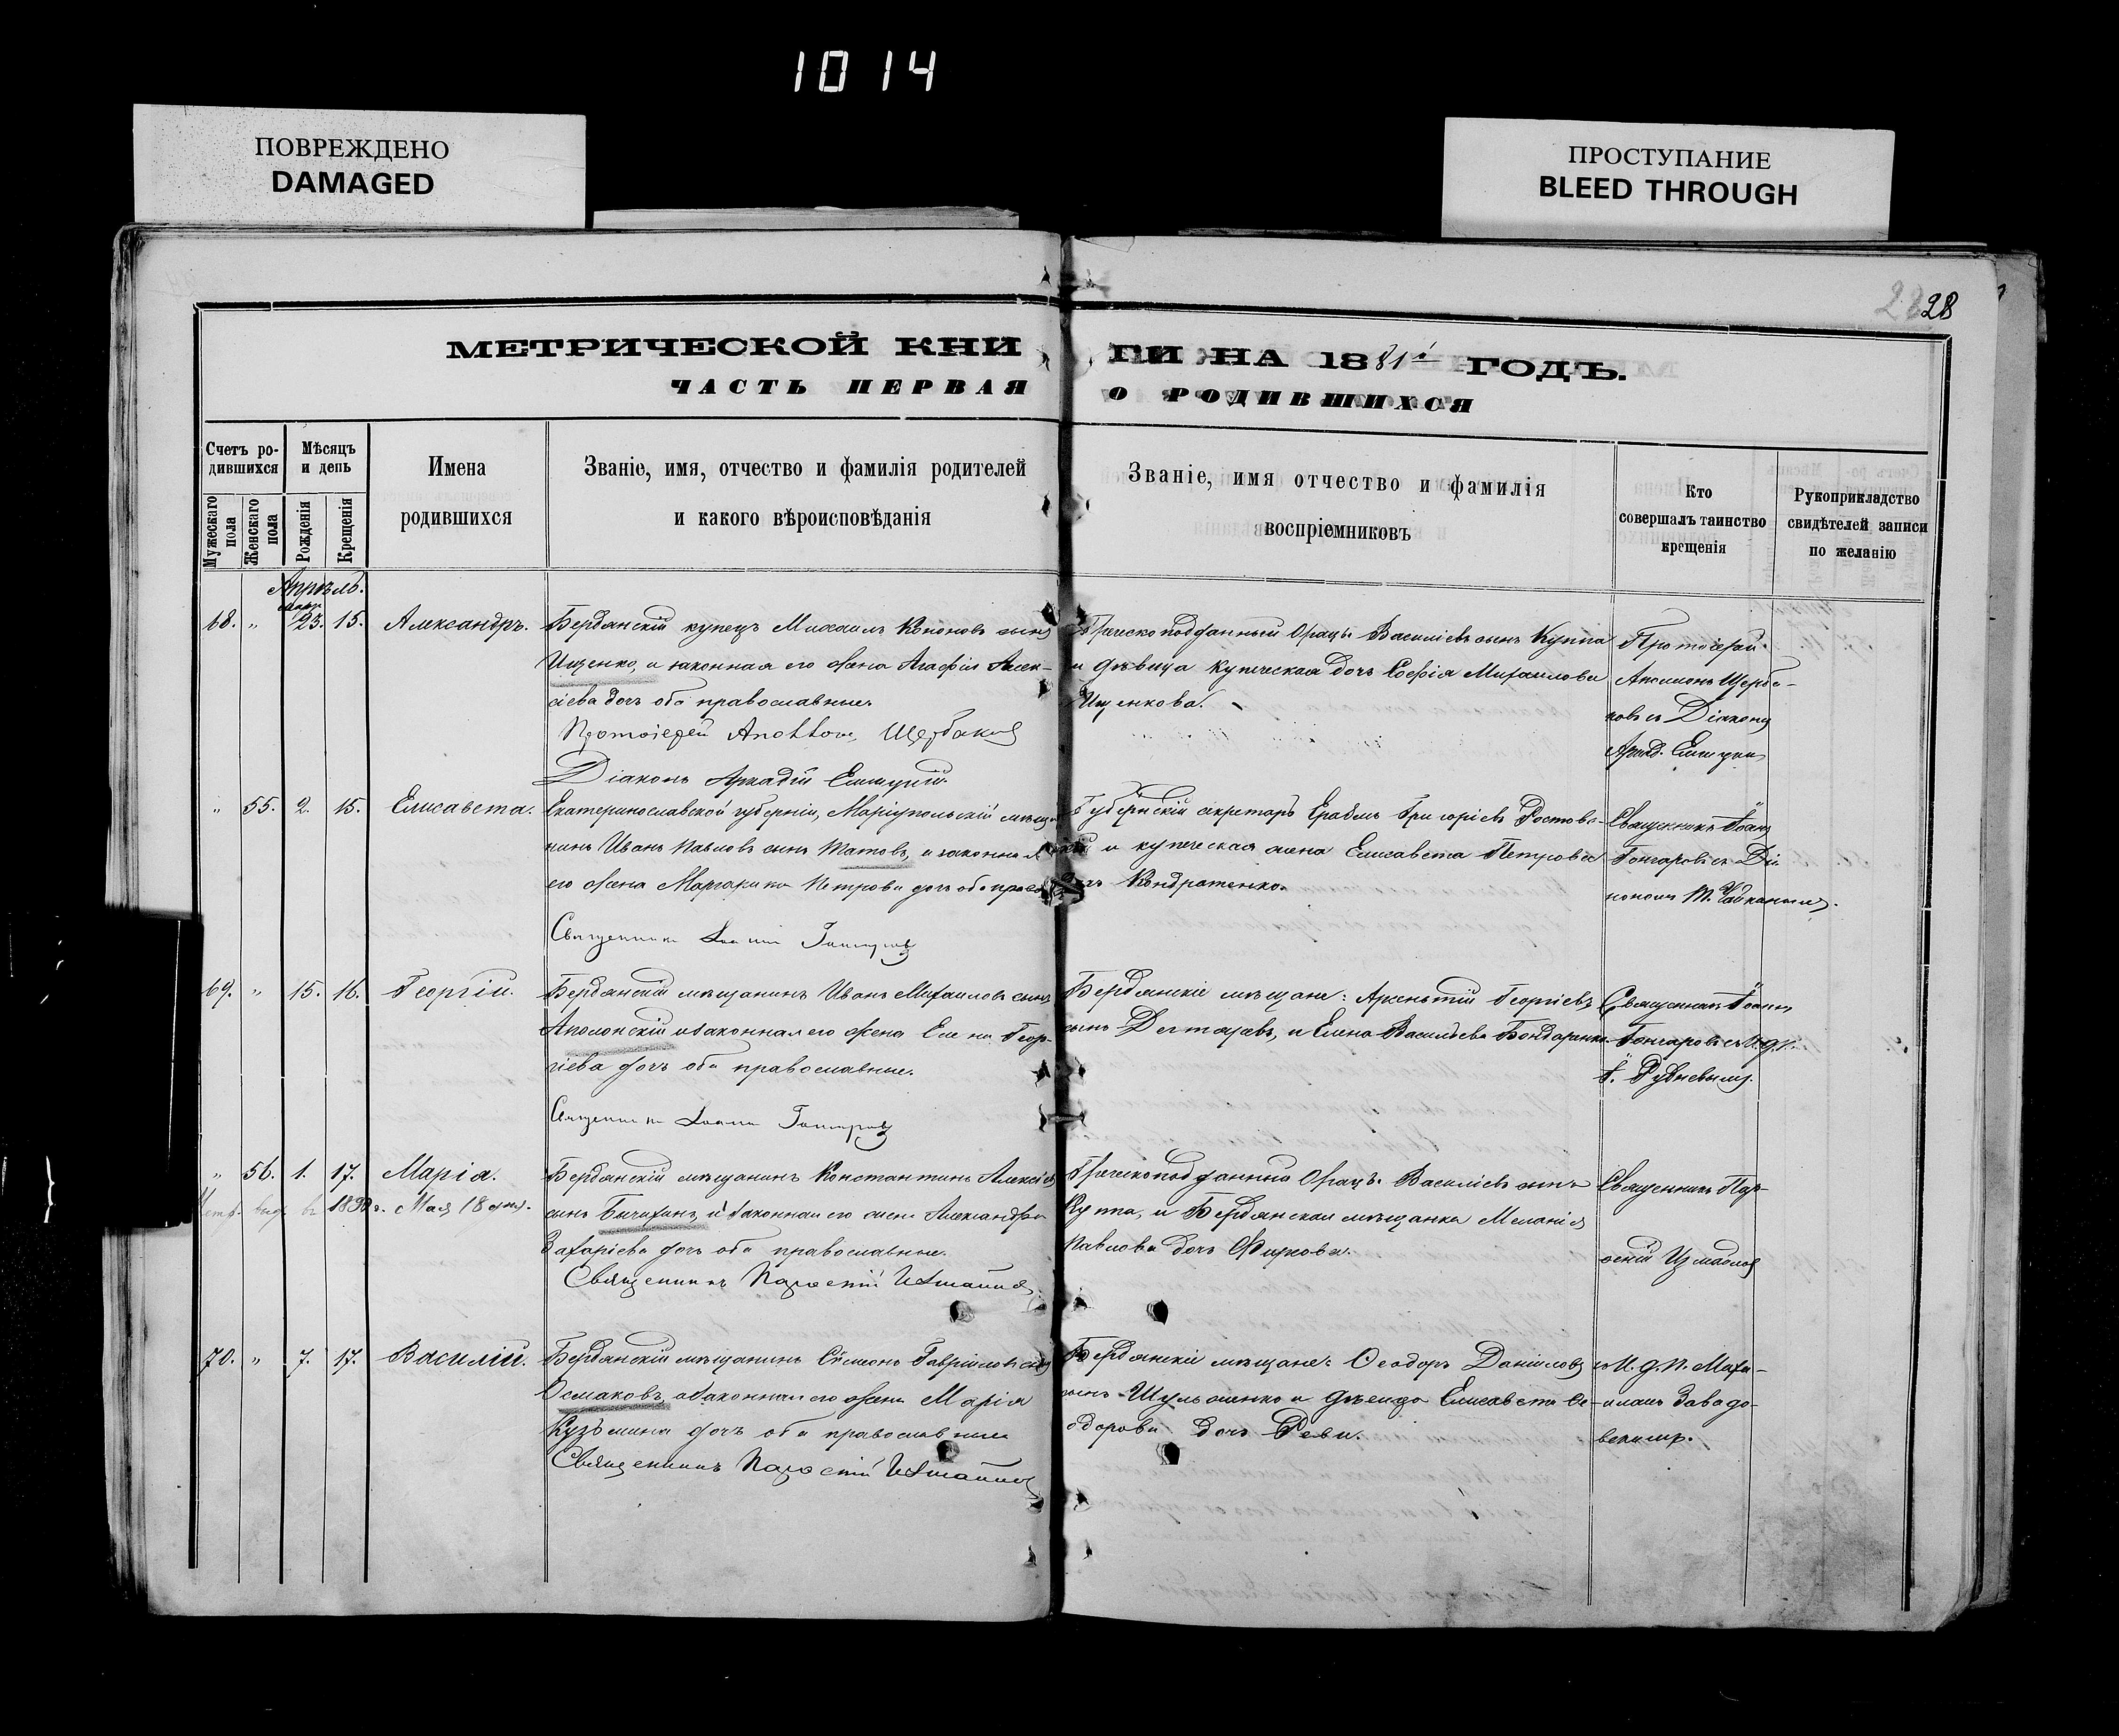 1014
ПОВРЕЖДЕНО
DAMAGED
ПРОСТУПАНИЕ
BLEED THROUGH
28
МЕТРИЧЕСКОЙ КНИГИ НА 1881й ГОДЪ.
ЧАСТЬ ПЕРВАЯ О РОДИВШИХСЯ
Счетъ родившихся
Мужескаго пола
Женскаго пола
Мѣсяцъ и день
Рожденія
Крещенія
Имена
родившихся
Званіе, имя, отчество и фамилія родителей
и какого вѣроисповѣданія
Званіе, имя отчество и фамилія
воспріемниковъ
Кто
совершалъ таинство
крещенія
Рукоприкладство
свидѣтелей записи
по желанію
Апрѣль.
март.
68. " 23. 15. Александръ.
Бердянскій купецъ Михаилъ Кононовъ сынъ
Ищенко, и законная его жена Агафія Алек-
сіева дочь оба православные.
Протоіерей Аполлонъ Щербаковъ
Діаконъ Аркадій
Греческоподданный Орацъ Василіевъ сынъ Куппа
и дѣвица купеческая дочь Софія Михаилова
Ищенкова.
Протоіерей
Аполлонъ Щерба-
ковъ съ Діакономъ
Аркад.
" 55. 2. 15. Елисавета.
Екатеринославской губерніи, Маріупольскій мѣща-
нинъ Иванъ Павловъ сынъ Татовъ, и законная
его жена Маргарита Петрова дочь оба правосл.
Священникъ Іоаннъ Гончаровъ
Губернскій секретарь Григоріевъ Ростовс-
кій и купеческая жена Елисавета Петрова
дочь Кондратенко.
Священникъ Іоаннъ
Гончаровъ съ Діа-
кономъ
69. " 15. 16. Георгій.
Бердянскій мѣщанинъ Иванъ Михаиловъ сынъ
Аполонскій и законная его жена Елена Геор-
гіева дочь оба православные.
Священникъ Іоаннъ Гончаровъ
Бердянскіе мѣщане: Арсентій Георгіевъ
сынъ Дегтяревъ, и Елена Васильева Бондаренко.
Священникъ Іоаннъ
Гончаровъ съ И.д.П.
І. Рудневымъ.
" 56. 1. 17. Марія.
Метр. выд. въ 1898 г. Мая 18 дня.
Бердянскій мѣщанинъ Константинъ Алексіевъ
сынъ Бичихинъ, и законная его жена Александра
Захаріева дочь оба православные.
Священникъ Параскій Измайловъ
Греческоподданный Орацъ Василіевъ сынъ
Куппа, и Бердянская мѣщанка Меланія
Павлова дочь Фиркова.
Священникъ Пар-
аскій Измаиловъ
70. " 7. 17. Василій.
Бердянскій мѣщанинъ Сѵмеонъ Гавріиловъ сынъ
Осмаковъ, и законная его жена Марія
Кузьмина дочь оба православные
Священникъ Параскій Измайловъ
Бердянскіе мѣщане: Ѳеодоръ Даніиловъ
сынъ Шульженко и дѣвица Елисавета Ѳе-
одорова дочь Рева.
съ И.д.П. Миха-
иломъ Завадо-
вскимъ.